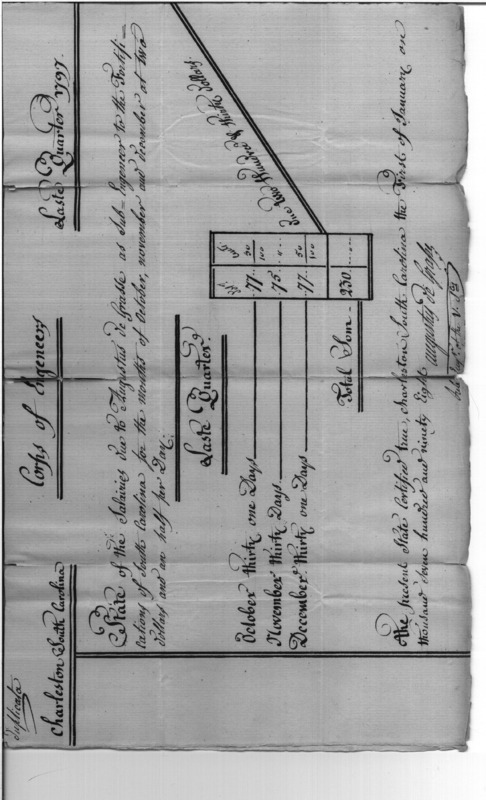 Duplicata
Charleston South Carolina
Corps of Engeneers
Laste Quarter 1797.
State of the Salairies due to Augustus De Grasse as Sub=Ingeneer to the Fortifi=
cations of South Carolina for the months of October, november and december at two
dollars and an half per Day.
Laste Quarter.
October thirty one Days 77.. 50/100
November thirty Days 75.. 0...
December thirty one Days 77.. 50/100
Total Som. 230......
Two Hundred & thirth dollars
The present State Certified true, Charleston South Carolina the First of January on
thousand seven hundred and ninety Eight Augustus De Grasse